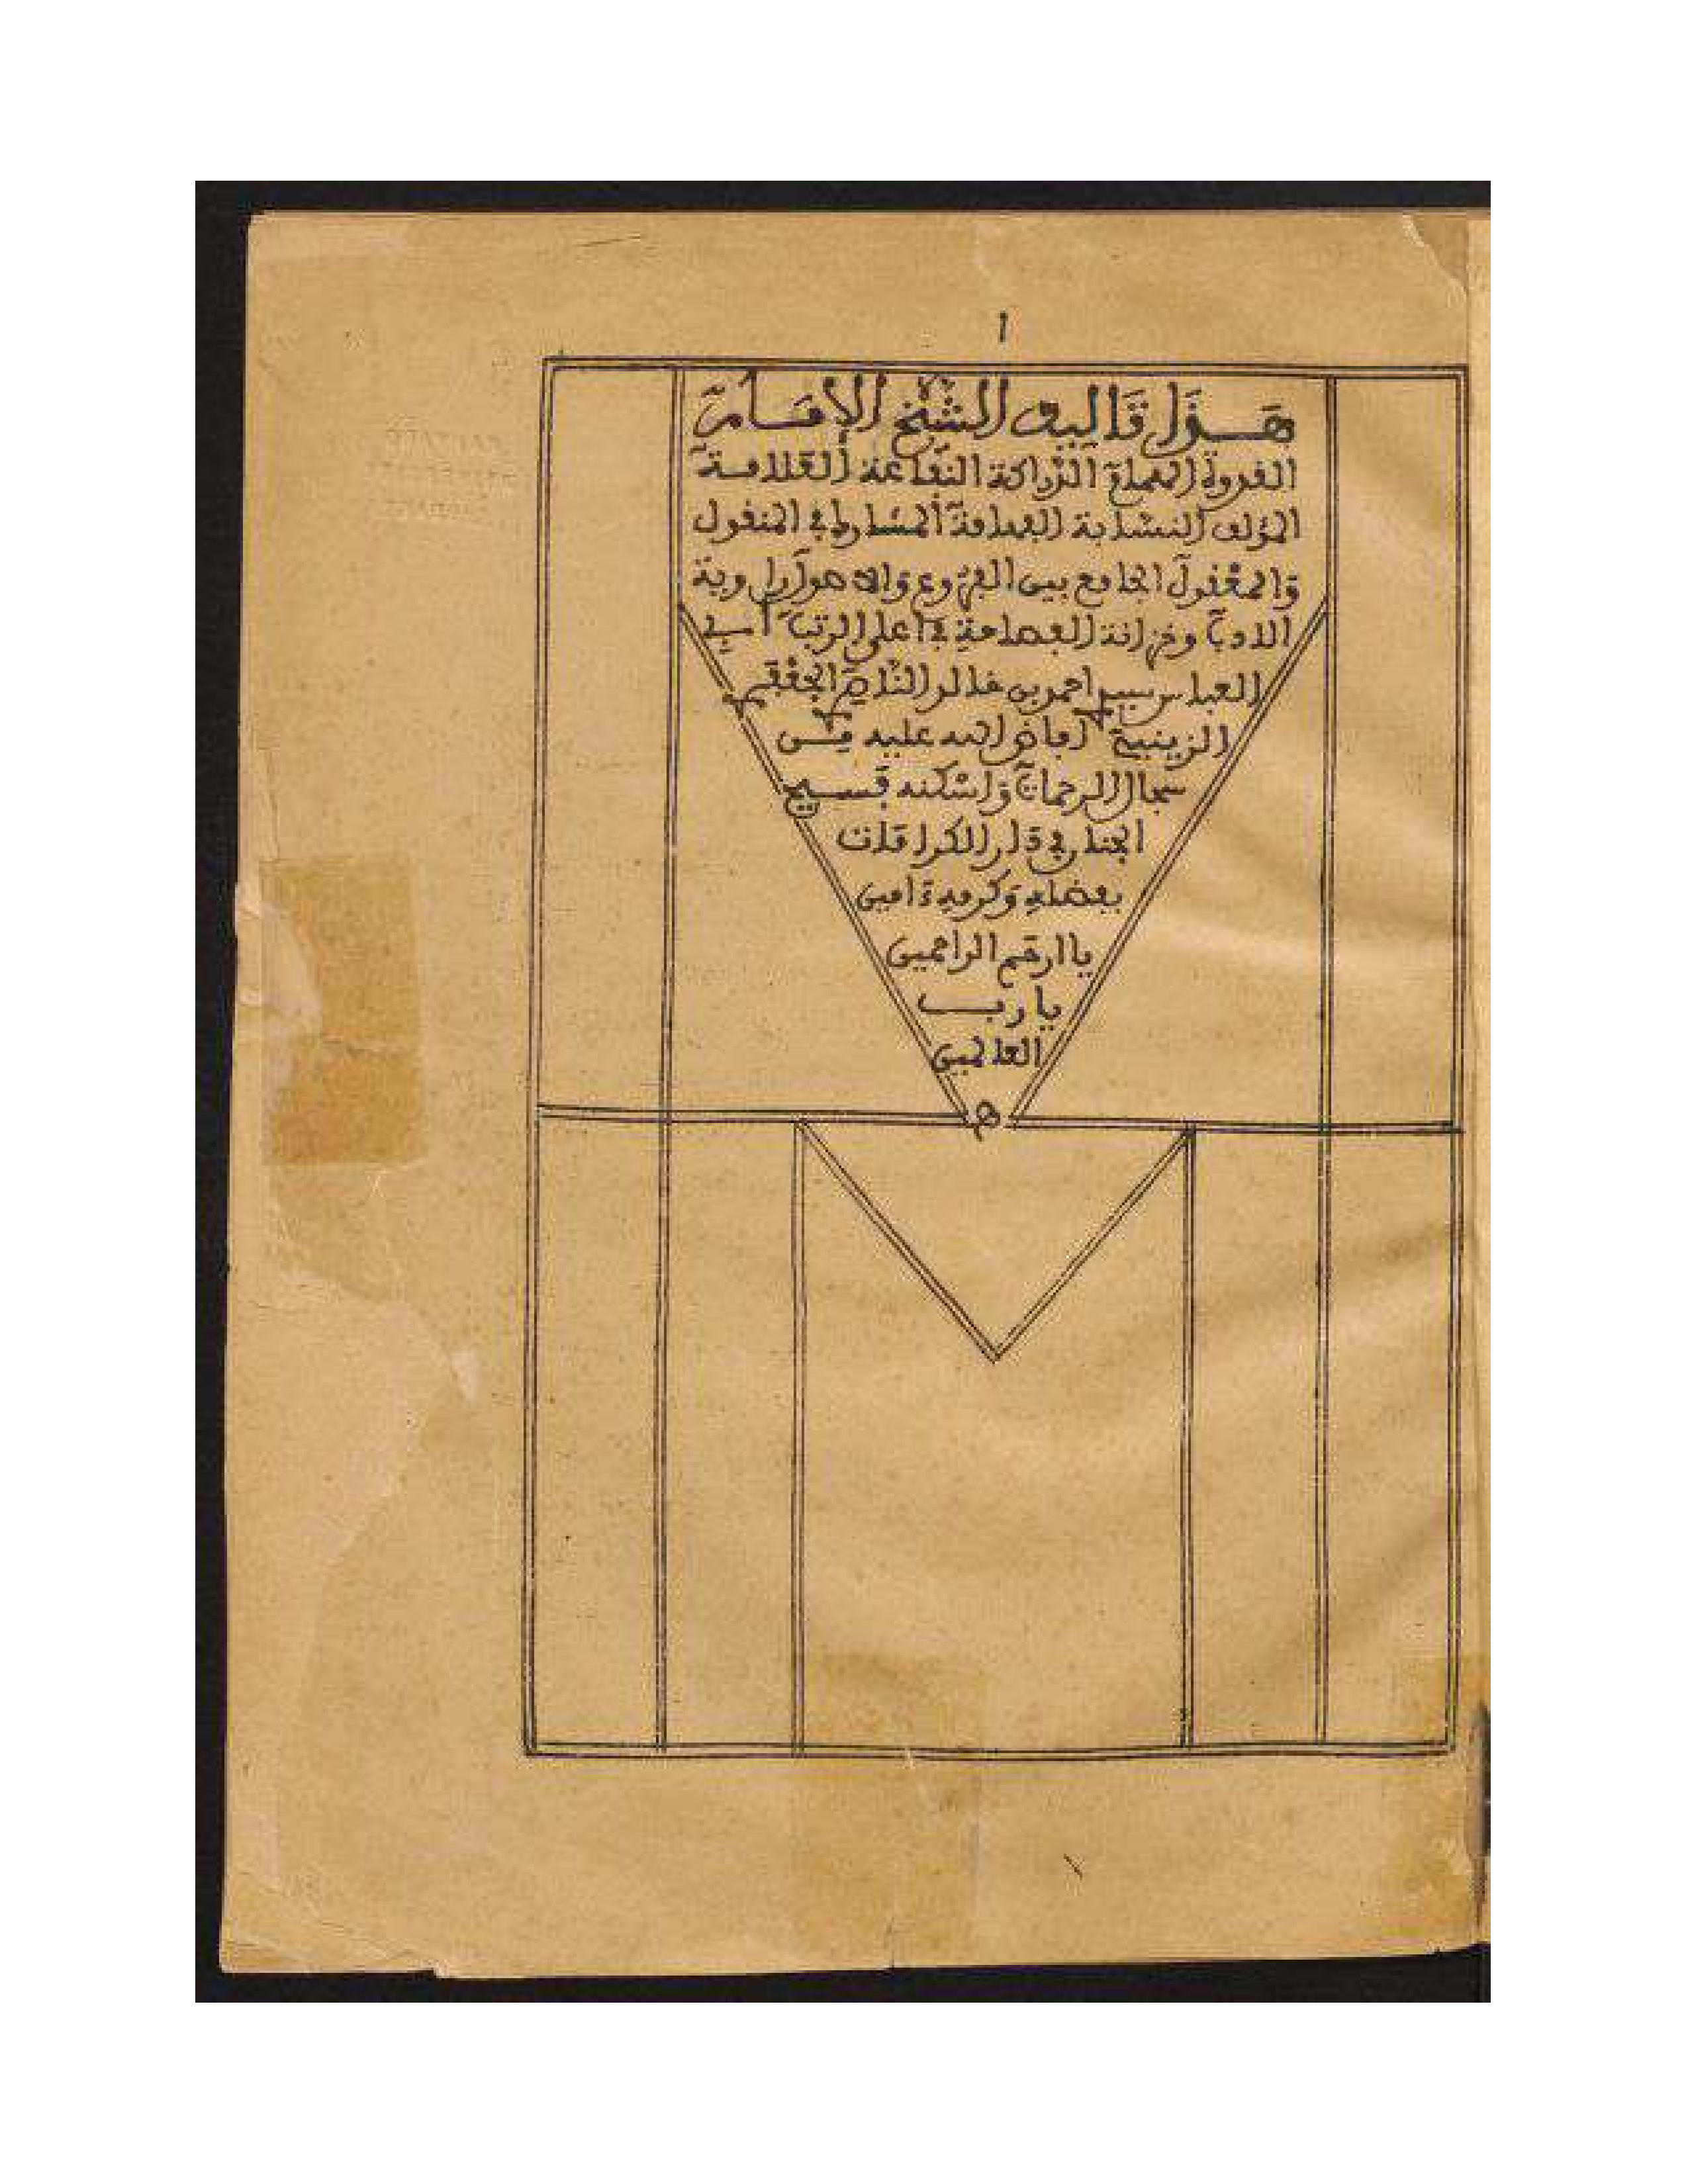 ١
هذا تاليف الشيخ الامام
القدوة الهمام الدراكة النفاعة العلامة
المؤلف النسابة الفهامة المشارك في المنقول
والمعقول الجامع بين الفروع والاصول راوية
الادب وخزانة الفصاحة في اعلى الرتب ابي
العباس سيد احمد بن خالد الناصري الجعفري
الزينبي افاض الله عليه من
سجال الرحمات واسكنه فسيح
الجنان في دار الكرامات
بفضله وكرمه ءامين
يا ارحم الراحمين
يا رب
العالمين